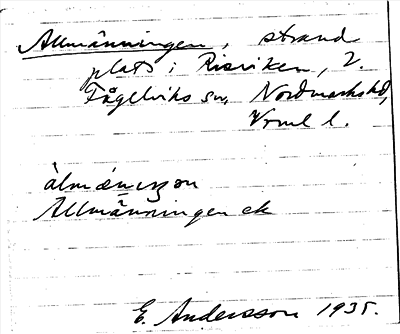 Allmänningen, strand
plats i Risviken, V.
Fågelviks sn, Nordmarks hd,
Vrml l.
álmǽnıŋən
Allmänningen ek
E. Andersson 1935.